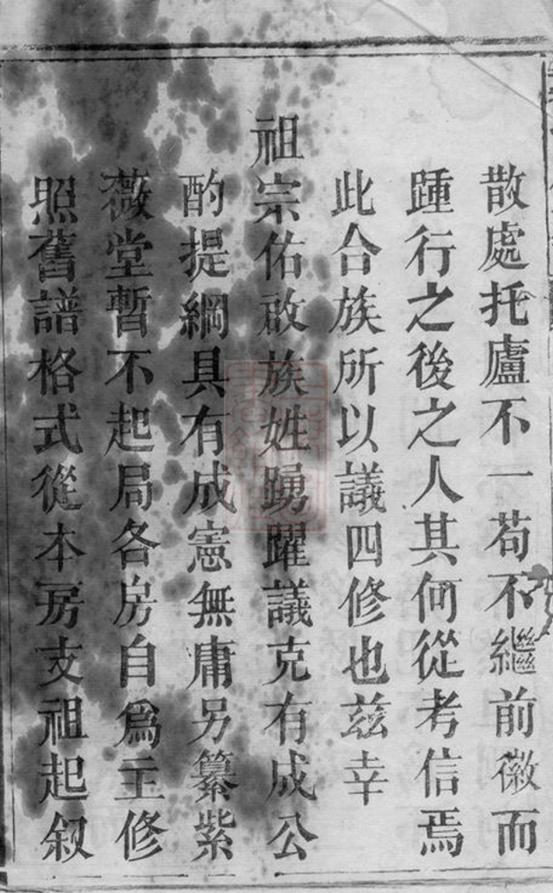 散處托廬不一苟不繼前徽而
踵行之後之人其何從考信焉
此合族所以議四修也茲幸
祖宗佑啟族姓踴躍議克有成公
酌提綱具有成憲無庸另纂紫
薇堂暫不起局各房自爲主修
照舊譜格式從本房支祖起叙